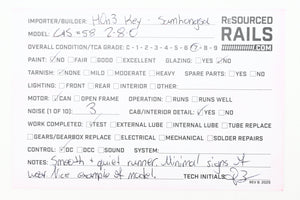 IMPORTER/BUILDER: HOn3 Key - Samhongsa
RESOURCED
RAILS
.COM
MODEL: C&S #58 2-8-0
OVERALL CONDITION/TCA GRADE: C - 1 - 2 - 3 - 4 - 5 - 6 - 7 - 8 - 9
PAINT: NO FAIR GOOD EXCELLENT GLAZING: YES NO
TARNISH: NONE MILD MODERATE HEAVY SPARE PARTS: YES NO
LIGHTING: FRONT REAR INTERIOR OTHER:
MOTOR: CAN OPEN FRAME OPERATION: RUNS RUNS WELL
NOISE (1 OF 10): 3 CAB/INTERIOR DETAIL: YES NO
WORK COMPLETED: TEST EXTERNAL LUBE INTERNAL LUBE TUBE REPLACE
GEARS/GEARBOX REPLACE ELECTRICAL MECHANICAL SOLDER REPAIRS
CONTROL: DC DCC SOUND SYSTEM:
NOTES: Smooth + quiet runner. Minimal signs of
wear. Nice example of model. TECH INITIALS:
REV 6.2025